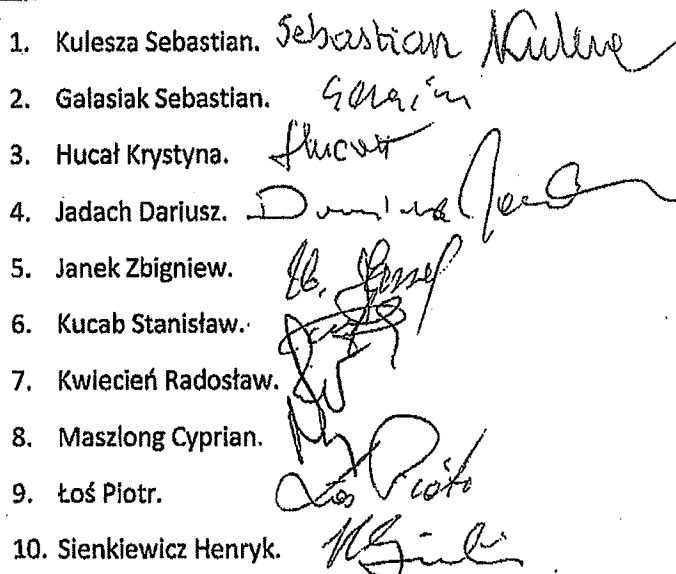 1. Kulesza Sebastian. Sebastian Kulesza
2. Galasiak Sebastian.
3. Hucał Krystyna. Hucał
4. Jadach Dariusz.
5. Janek Zbigniew.
6. Kucab Stanisław.
7. Kwiecień Radosław.
8. Maszlong Cyprian.
9. Łoś Piotr. Łoś Piotr
10. Sienkiewicz Henryk.